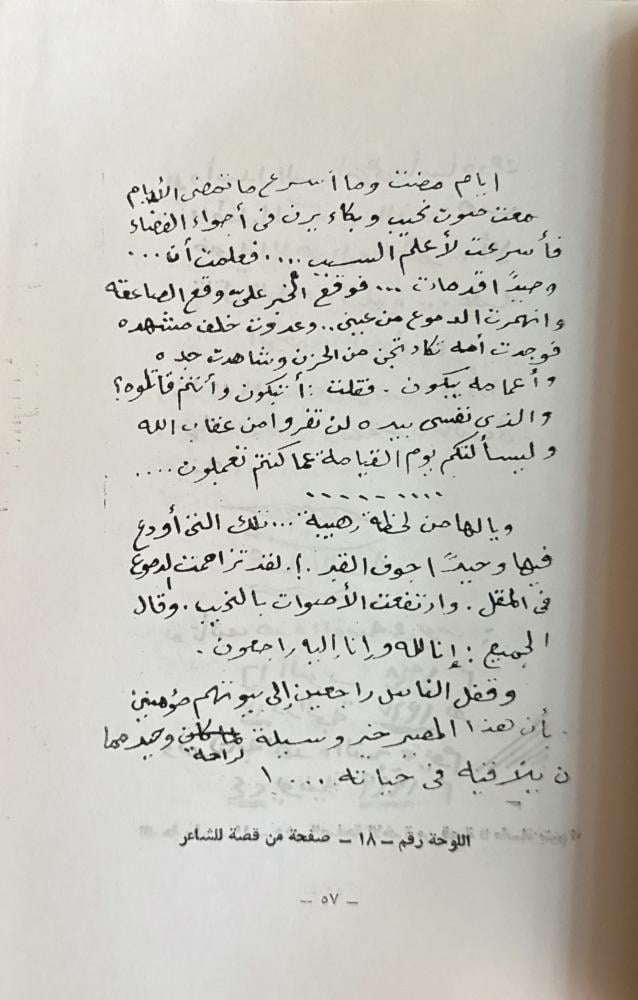 ايام مضت وما أسرع ما تمضى الأيام
سمعت صوت نحيب وبكاء يرن فى أجواء الفضاء
فأسرعت لأعلم السبب .... فعلمت أن ...
وحيدًا قد مات ... فوقع الخبر علىّ وقع الصاعقه
وانهمرت الدموع من عينى .. وعدوت خلف مشهده
فوجدت أمه تكاد تجن من الحزن وشاهدت جده
وأعمامه يبكون . فقلت : أتبكون وأنتم قاتلوه؟
والذى نفسى بيده لن تفروا من عقاب الله
وليسألنكم يوم القيامة عما كنتم تعملون ....
.........
ويالها من لحظة رهيبة ... تلك التى أودع
فيها وحيدًا جوف القبر .!. لقد تزاحمت الدموع
فى المقل . وارتفعت الأصوات بالنحيب . وقال
الجميع : إنا لله وإنا إليه راجعون .
وقفل الناس راجعين إلى بيوتهم مؤمنين
بأن هذا المصير خير وسيلة لراحة وحيد مما
ن يلاقيه فى حياته .... !
اللوحة رقم - ١٨ - صفحة من قصة للشاعر
- ٥٧ -